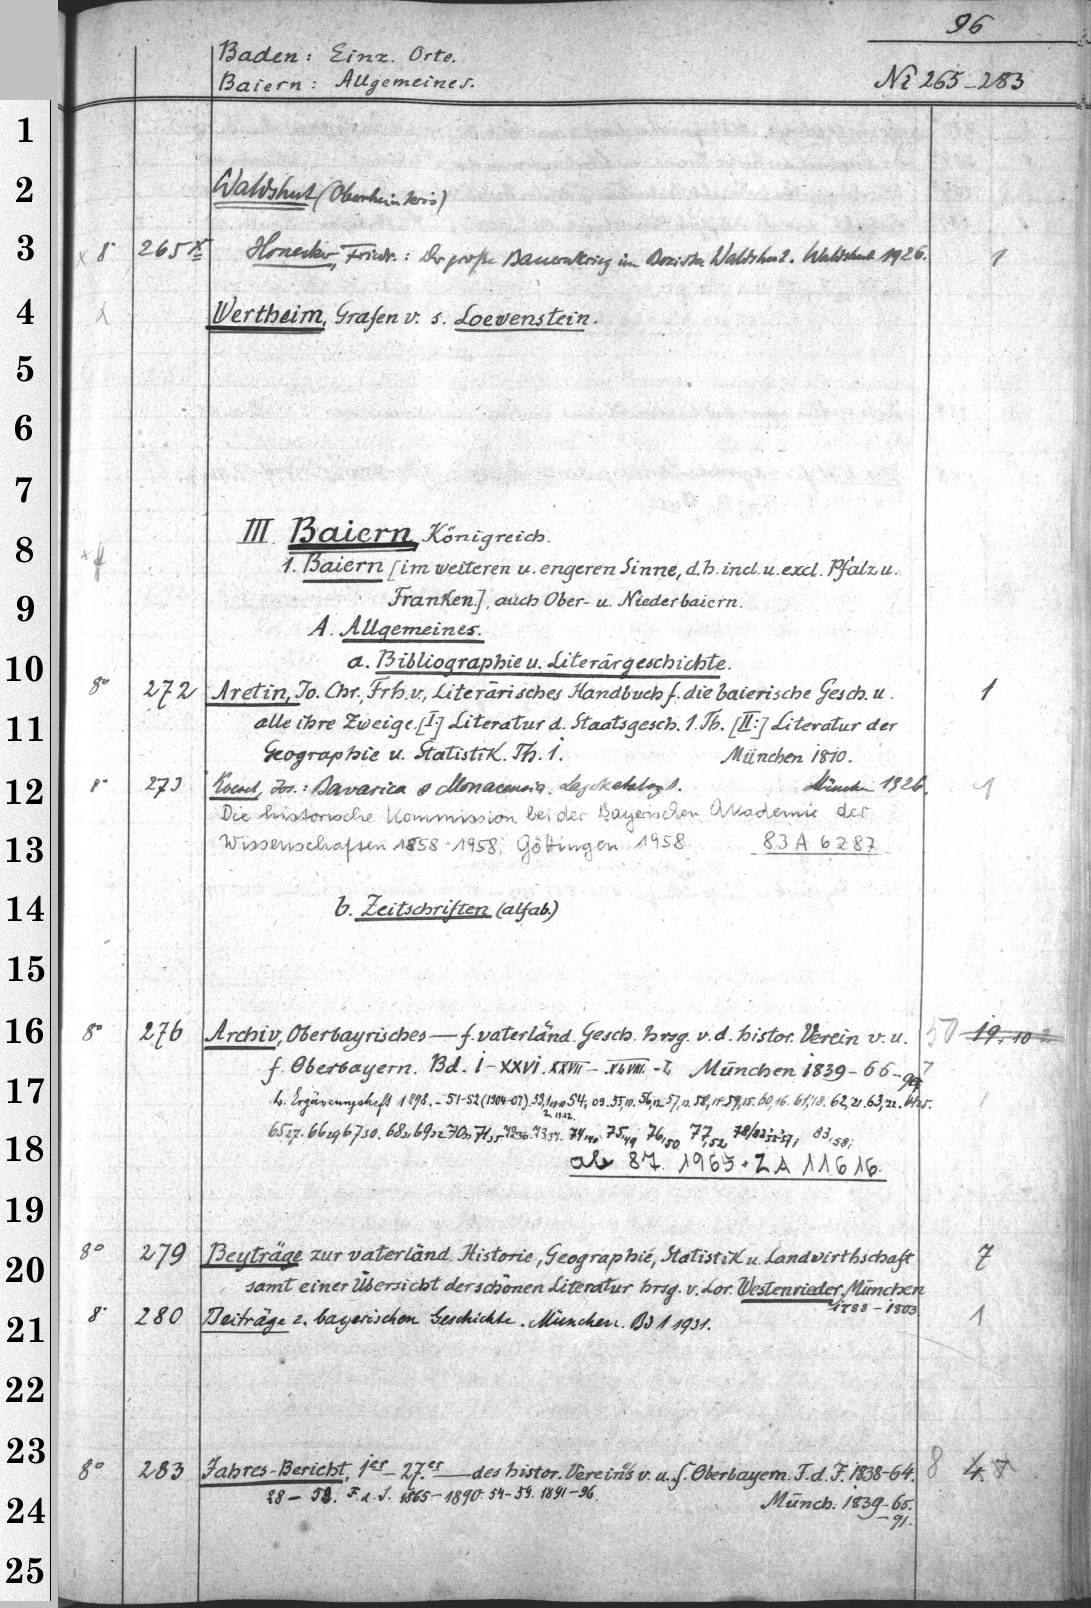 96
Baden: Einz. Orte.
Baiern: Allgemeines.
No 265-283
1
2 Waldshut (Oberrheinkreis)
3 x 8° 265x Honecker, Friedr.: Der große Bauernkrieg im Bezirke Waldshut. Waldshut 1926. 1
4 Wertheim, Grafen v. s. Loewenstein.
5
6
7
III. Baiern, Königreich.
8 1. Baiern [im weiteren u. engeren Sinne, d.h. incl. u. excl. Pfalz u.
9 Franken], auch Ober- u. Niederbaiern.
A. Allgemeines.
10 a. Bibliographie u. Literärgeschichte.
8° 272 Aretin, Jo. Chr., Frh. v., Literärisches Handbuch f. die baierische Gesch. u. 1
11 alle ihre Zweige. [I:] Literatur d. Staatsgesch. 1. Th. [II:] Literatur der
Geographie u. Statistik. Th. 1. München 1810.
12 8° 273 Jos.: Bavarica & Monacensia. München 1926. 1
Die historische Kommission bei der Bayerischen Akademie der
13 Wissenschaften 1858-1958. Göttingen 1958. 83 A 6287
14 b. Zeitschriften (alfab.)
15
16 8° 276 Archiv, Oberbayrisches — f. vaterländ. Gesch. hrsg. v. d. histor. Verein v. u. 50 19. 10
f. Oberbayern. Bd. 1-XXVI. XXVII - XLVIII. - L München 1839-66-97
17 h. Ergänzungsheft 1898. - 51-52 (1904-07).
18 ab 87. 1965 • ZA 11616.
19
8° 279 Beyträge zur vaterländ. Historie, Geographie, Statistik u. Landwirthschaft 7
20 samt einer Übersicht der schönen Literatur hrsg. v. Lor. Westenrieder. München
1788-1803
21 8° 280 Beiträge z. bayerischen Geschichte. München. Bd 1 1931. 1
22
23
8° 283 Jahres-Bericht, 1er - 27.er — des histor. Vereins v. u. f. Oberbayern. F. d. J. 1838-64. 8 4.
24 28 - 53. F. d. J. 1865-1890. 54-59. 1891-96. Münch. 1839-65.
-91.
25